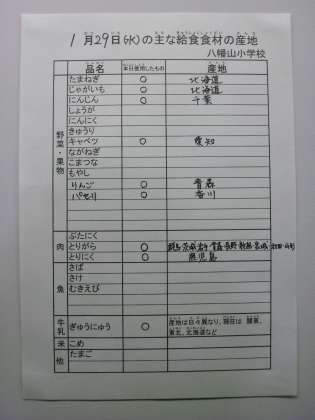 1月29日(水)の主な給食食材の産地
八幡山小学校
品名 本日使用したもの 産地
野菜・果物
たまねぎ ○ 北海道
じゃがいも ○ 北海道
にんじん ○ 千葉
しょうが
にんにく
きゅうり
キャベツ ○ 愛知
ながねぎ
こまつな
もやし
りんご ○ 青森
パセリ ○ 香川
肉
ぶたにく
とりがら ○
とりにく ○ 鹿児島
魚
さば
さけ
むきえび
牛乳
ぎゅうにゅう ○ 産地は日々異なり、現在は 関東、
東北、北海道など
米 こめ
他 たまご